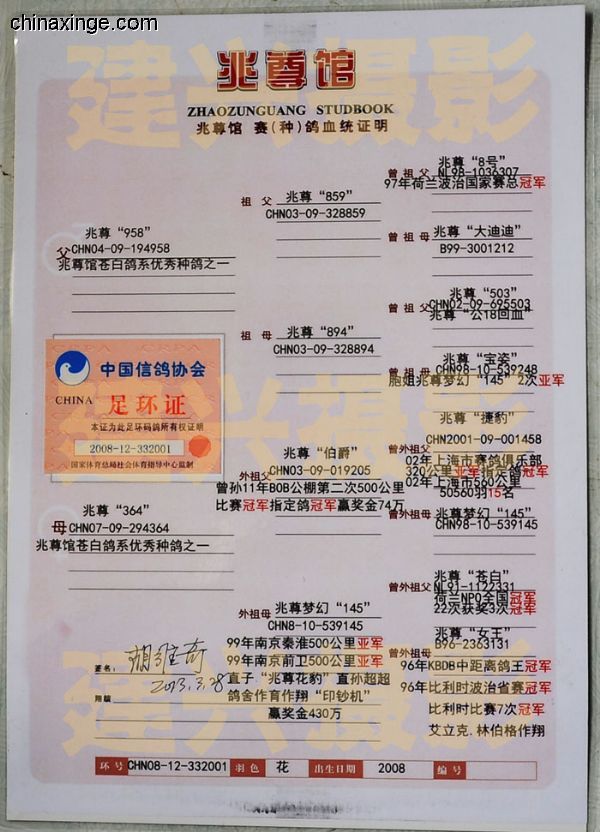 chinaxinge.com
建兴摄影
兆尊馆
ZHAOZUNGUANG STUDBOOK
兆尊馆 赛(种)鸽血统证明
父
兆尊“958”
CHN04-09-194958
兆尊馆苍白鸽系优秀种鸽之一
祖父
兆尊“859”
CHN03-09-328859
曾祖父
兆尊“8号”
NL98-1036307
97年荷兰波治国家赛总冠军
曾祖母
兆尊“大迪迪”
B99-3001212
祖母
兆尊“894”
CHN03-09-328894
曾祖父
兆尊“503”
CHN02-09-695503
兆尊“公18回血”
曾祖母
兆尊“宝姿”
CHN98-10-539248
胞姐兆尊梦幻“145”2次亚军
建兴摄影
中国信鸽协会
CHINA
足环证
本证为此足环码鸽所有权证明
2008-12-332001
国家体育总局社会体育指导中心监制
母
兆尊“364”
CHN07-09-294364
兆尊馆苍白鸽系优秀种鸽之一
外祖父
兆尊“伯爵”
CHN03-09-019205
曾孙11年BOB公棚第二次500公里
比赛冠军指定鸽冠军赢奖金74万
曾外祖父
兆尊“捷豹”
CHN2001-09-001458
02年上海市赛鸽俱乐部
320公里亚军指定鸽冠军
02年上海市560公里
50560羽15名
曾外祖母
兆尊梦幻“145”
CHN98-10-539145
外祖母
兆尊梦幻“145”
CHN8-10-539145
99年南京秦淮500公里亚军
99年南京前卫500公里亚军
直子“兆尊花豹”直孙超超
鸽舍作育作翔“印钞机”
赢奖金430万
曾外祖父
兆尊“苍白”
NL91-1122331
荷兰NPO全国冠军
22次获奖3次冠军
曾外祖母
兆尊“女王”
B96-2363131
96年KBDB中距离鸽王冠军
96年比利时波治省赛冠军
比利时比赛7次冠军
艾立克.林伯格作翔
签名:
2013.3.28
翔龄
建兴摄影
环号 CHN08-12-332001 羽色 花 出生日期 2008 编号